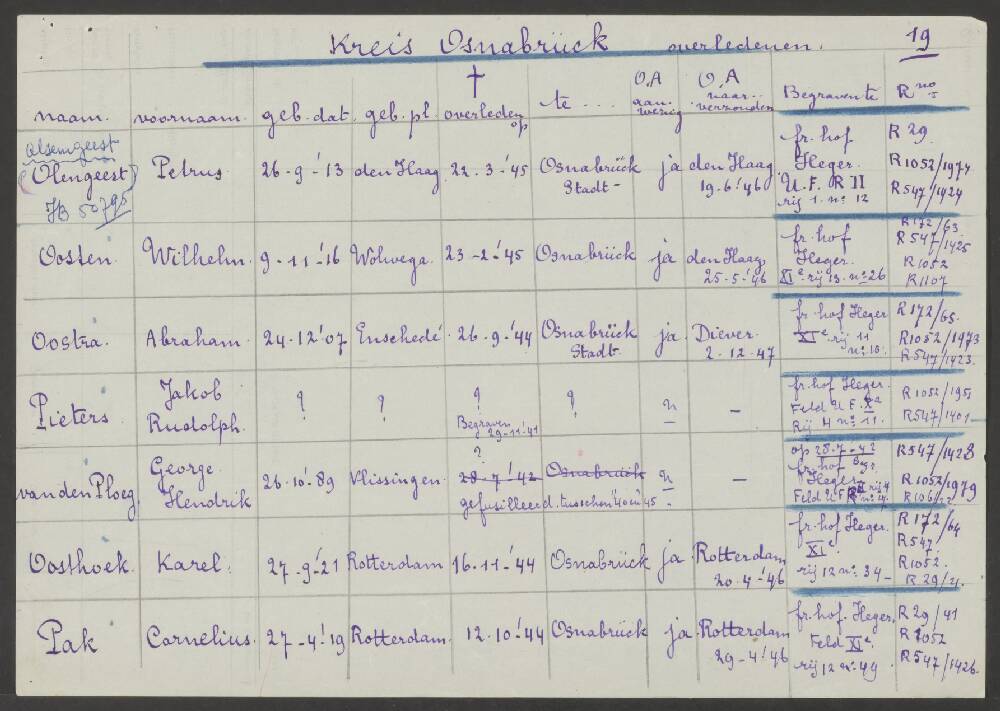 Kreis Osnabrück overledenen. 19
naam. voornaam. geb. dat. geb. pl. † overleden op te ... O.A aanwezig O.A naar.. verzonden Begraven te R no
Olsemgeest
(Olengeest) Petrus. 26-9-'13 den Haag. 22-3-'45 Osnabrück Stadt- ja den Haag 19-6-'46
JB 50795
fr. hof
Heger.
U.F. R II
rij 1. no 12
R 29.
R1052/1974
R547/1424
Oosten. Wilhelm. 9-11-'16 Wolvega. 23-2-'45 Osnabrück ja den Haag. 25-5-'46
fr. hof
Heger.
XIe rij 13. no 26
R172/63.
R547/1425
R1052
R1107
Oostra. Abraham. 24-12-'07 Enschedé. 26-9-'44 Osnabrück Stadt. ja. Diever. 2-12-'47
fr. hof Heger
XIe rij 11
no 18.
R172/65.
R1052/1973
R547/1423.
Pieters. Jakob Rudolph. ? ? ? ? n -
Begraven
29-11-'41
fr. hof Heger.
Feld U.F. Xe
Rij 4 no 11.
R1052/195
R547/1401
van den Ploeg. George Hendrik 26-10-'89 Vlissingen. ? 28-7-'42 Osnabrück n -
gefusilleerd. tusschen '40 en '45
op 28-7-42
fr. hof Begr.
Heger
Feld U.F. rij 4
R547/1428
R1052/1979
R106/22
Oosthoek. Karel. 27-9-'21 Rotterdam 16-11-'44 Osnabrück ja Rotterdam 20-4-'46
fr. hof Heger.
XIe
rij 12 no 34-
R172/64
R547/
R1052.
R29/4.
Pak Cornelius. 27-4-'19 Rotterdam. 12-10-'44 Osnabrück ja Rotterdam 29-4-'46
fr. hof. Heger.
Feld XIe
rij 12 no 49.
R29/41
R1052
R547/1426.